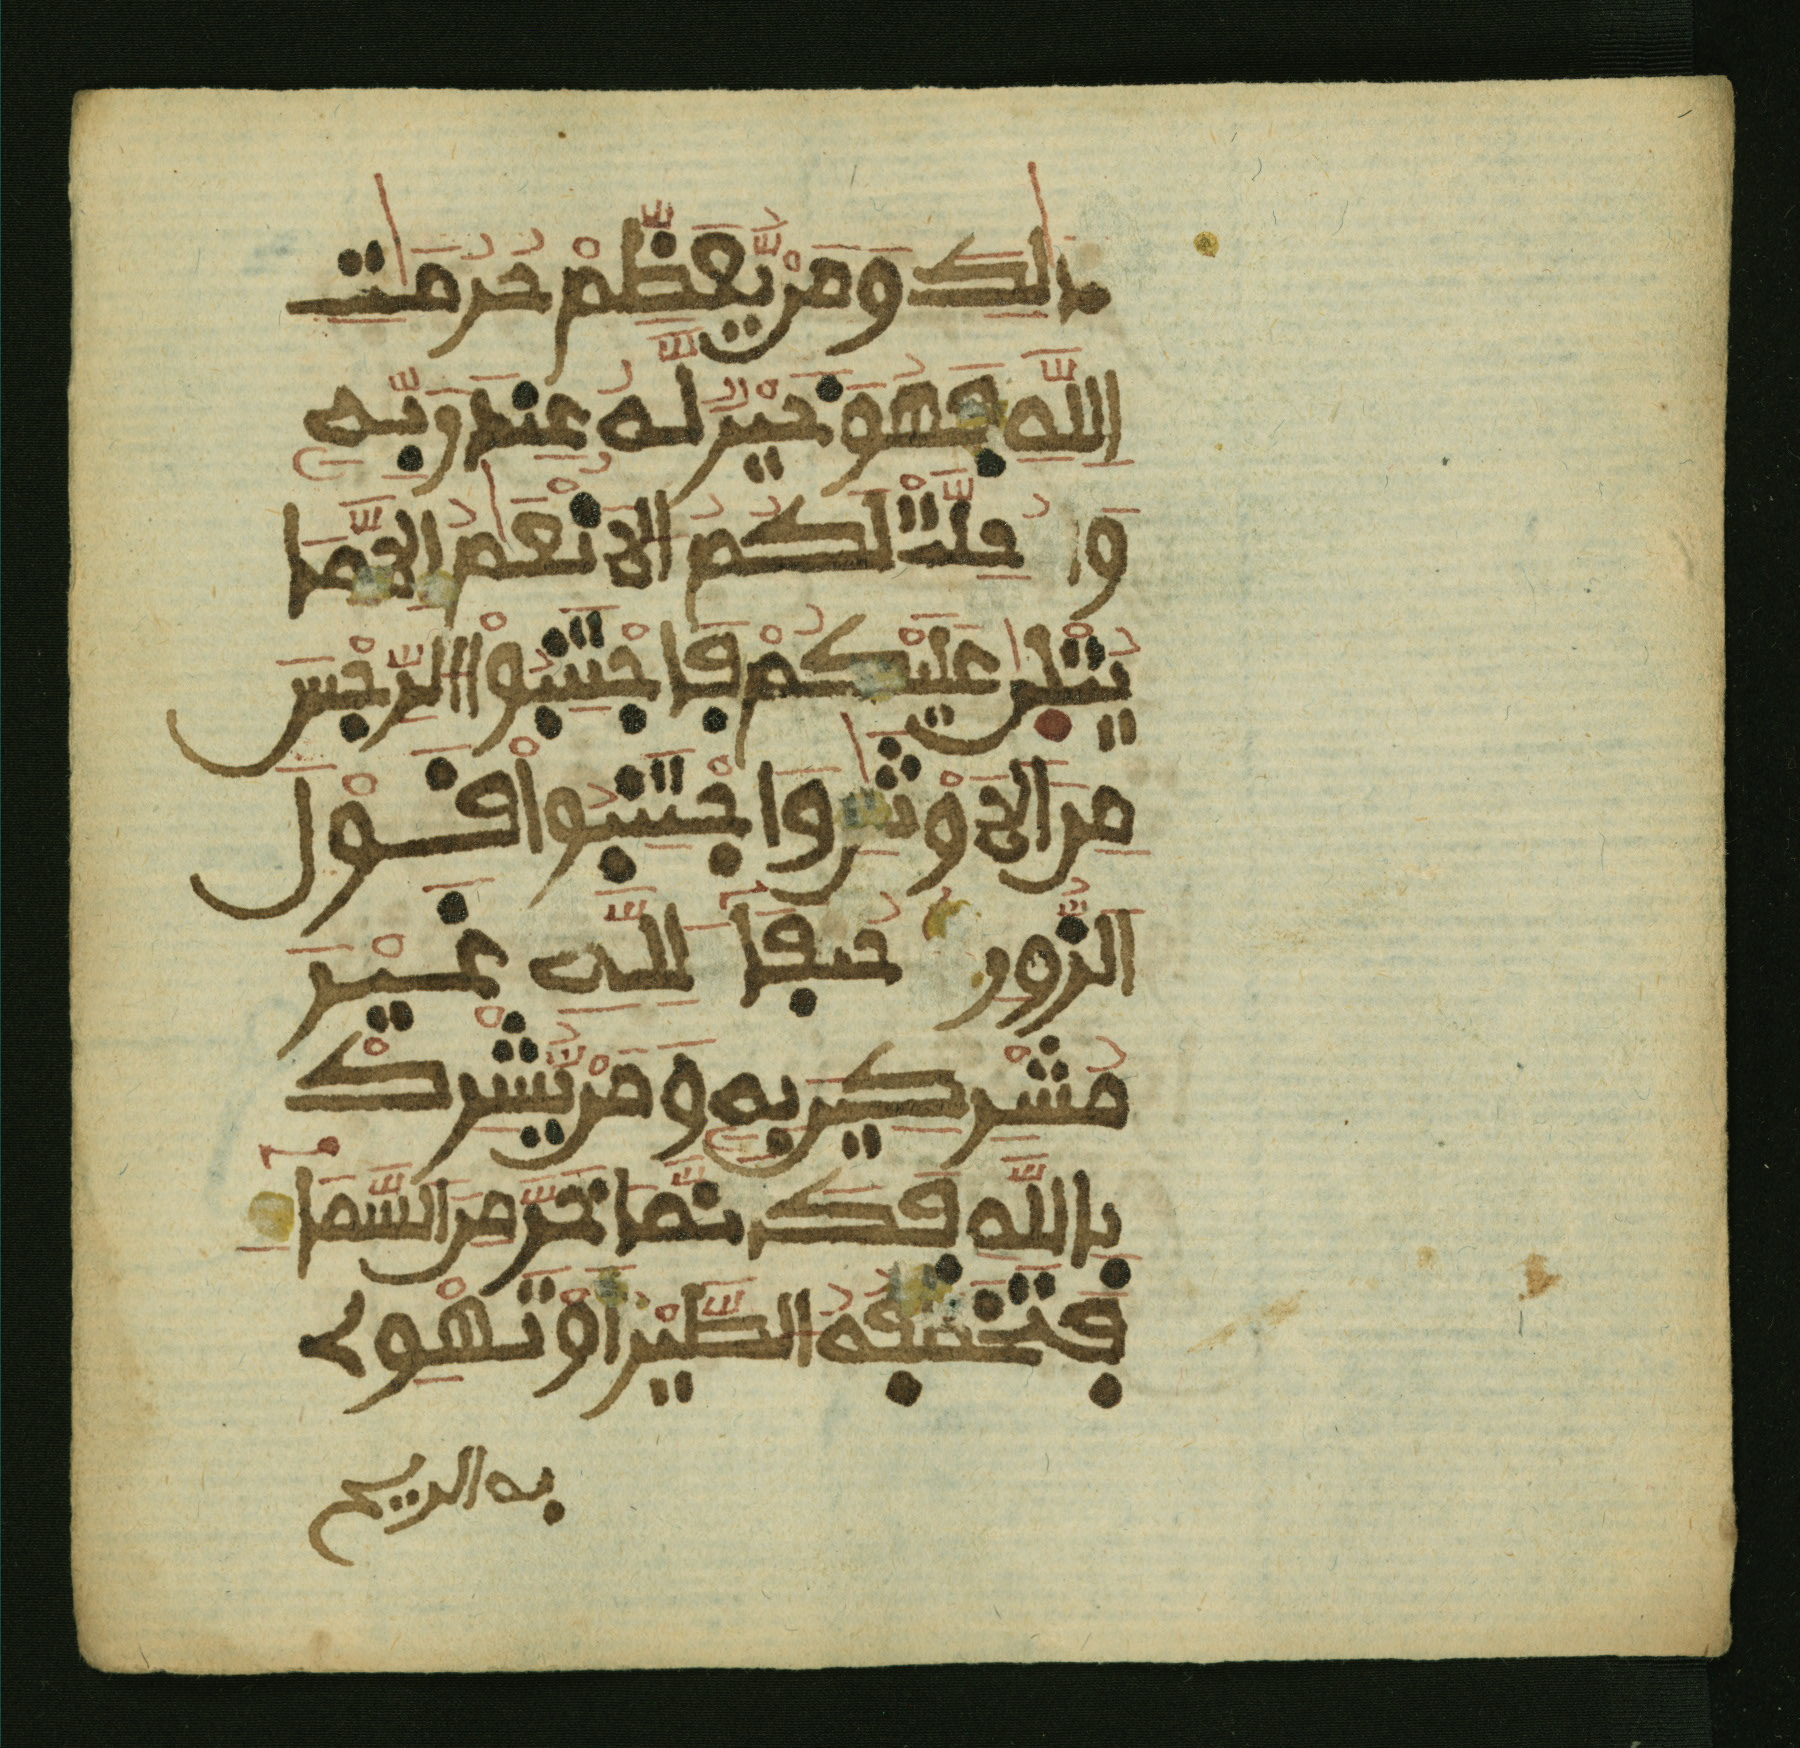 ذَٰلِكَ وَمَنْ يُّعَظِّمْ حُرُمَٰتِ
اللَّهِ فَهُوَ خَيْرٌ لَّهُ عِندَ رَبِّهِ
وَا حِلَّتْ لَكُمُ الَانْعَٰمُ إِلَّا مَا
يُتْلَىٰ عَلَيْكُمْ فَاجْتَنِبُوْا الرِّجْسَ
مِنَ الَاوْثَٰنِ وَاجْتَنِبُوا قَوْلَ
الزُّورِ حُنَفَآ لِلَّهِ غَيْرَ
مُشْرِكِينَ بِهِ وَمَنْ يُّشْرِكْ
بِاللَّهِ فَكَأَنَّمَا خَرَّ مِنَ السَّمَا
فَتَخَطَّفُهُ الطَّيْرُ أَوْ تَهْوِے
به الريح